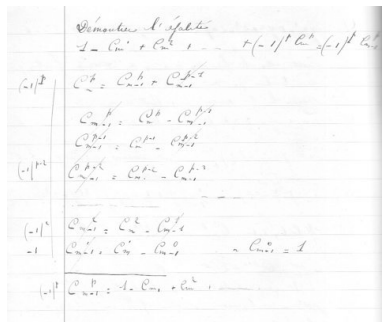 Démontrer l'égalité
1 - C_m^1 + C_m^2 , . . . + (-1)^p C_m^p = (-1)^p C_{m-1}^p
(-1)^p C_m^p = C_{m-1}^p + C_{m-1}^{p-1}
C_{m-1}^p = C_m^p - C_{m-1}^{p-1}
C_{m-1}^{p-1} = C_m^{p-1} - C_{m-1}^{p-2}
(-1)^{p-2} C_{m-1}^{p-2} = C_m^{p-2} - C_{m-1}^{p-3}
(-1)^2 C_{m-1}^2 = C_m^2 - C_{m-1}^1
-1 C_{m-1}^1 = C_m^1 - C_{m-1}^0 - C_{m-1}^0 = 1
(-1)^p C_{m-1}^p = 1 - C_m + C_m^2 .